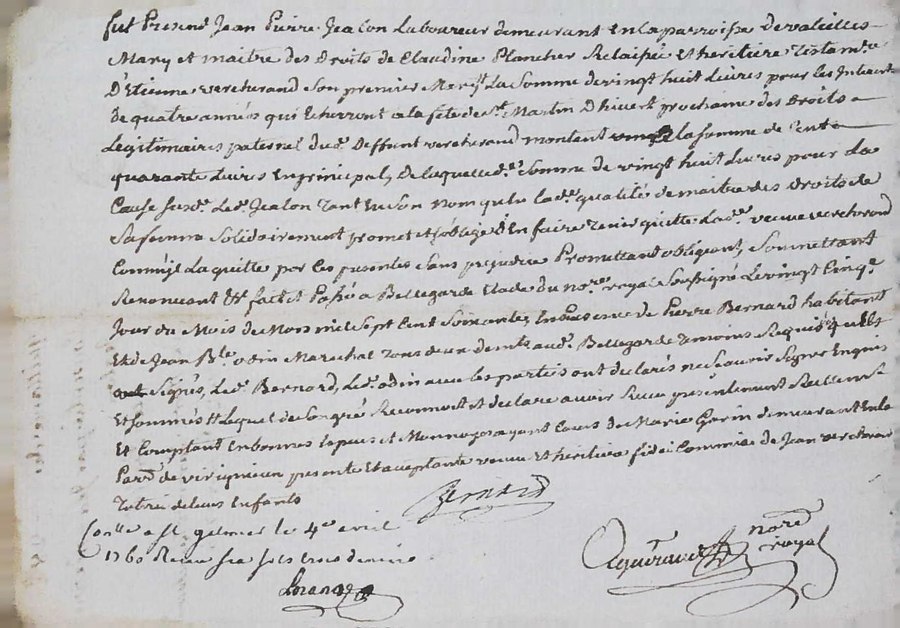 fut Present Jean Pierre Jealon Laboureur demeurant En la parroisse de valeilles
Mary et maitre des Droits de Claudine Plancher Relaissé Et heretiere Testamre
D'Etienne vercherand Son premier Mary, La Somme de vingt huit Livres pour les Interest
de quatre années qui Echerront a la fete de st Martin D'hivert prochaine des Droits
Legitimaires paternel dud. Deffunt vercherand montant a la somme de Cent
quarante Livres En principal, de laquelle de. Somme de vingt huit Livres pour La
Cause susde. Led. Jealon Tant En Son nom qu'En lade. qualité de maitre des droits de
Sa femme Solidairement promet et s'oblige D'En faire Tenir quitte Lade. veuve vercherand
Comm'il La quitte par les presentes Sans prejudice Promettant obligeant, Soumettant
Renonceant &c fait et Passé a Bellegarde Etude du nore. royal Soussigné Le vingt Cinqe.
Jour du Mois de Mars mil Sept Cent Soixante, En Presence de Pierre Bernard habitant
Et de Jean Bte. odin Marechal Tous deux dem.t aud. Bellegarde Temoins Requis qui Est
Signés, Led. Bernard, Led. odin avec les parties ont declarés ne Scavoir Signer Enquis
Et Sommés &c Lequel de Son gré Reconnoit et declare avoir Receu presentement Reellemt
Et Comptant En bonnes Especes et Monnoyes ayant Cours de Marie Garin demeurant En la
Parse. de virignieux presente Et acceptante veuve et heritiere fidei Commise de Jean vercherand
Tutrice de leurs Enfants
Bernard
Conlle a st galmier le 4e avril
1760 Receu six sols trois deniers
nore royal